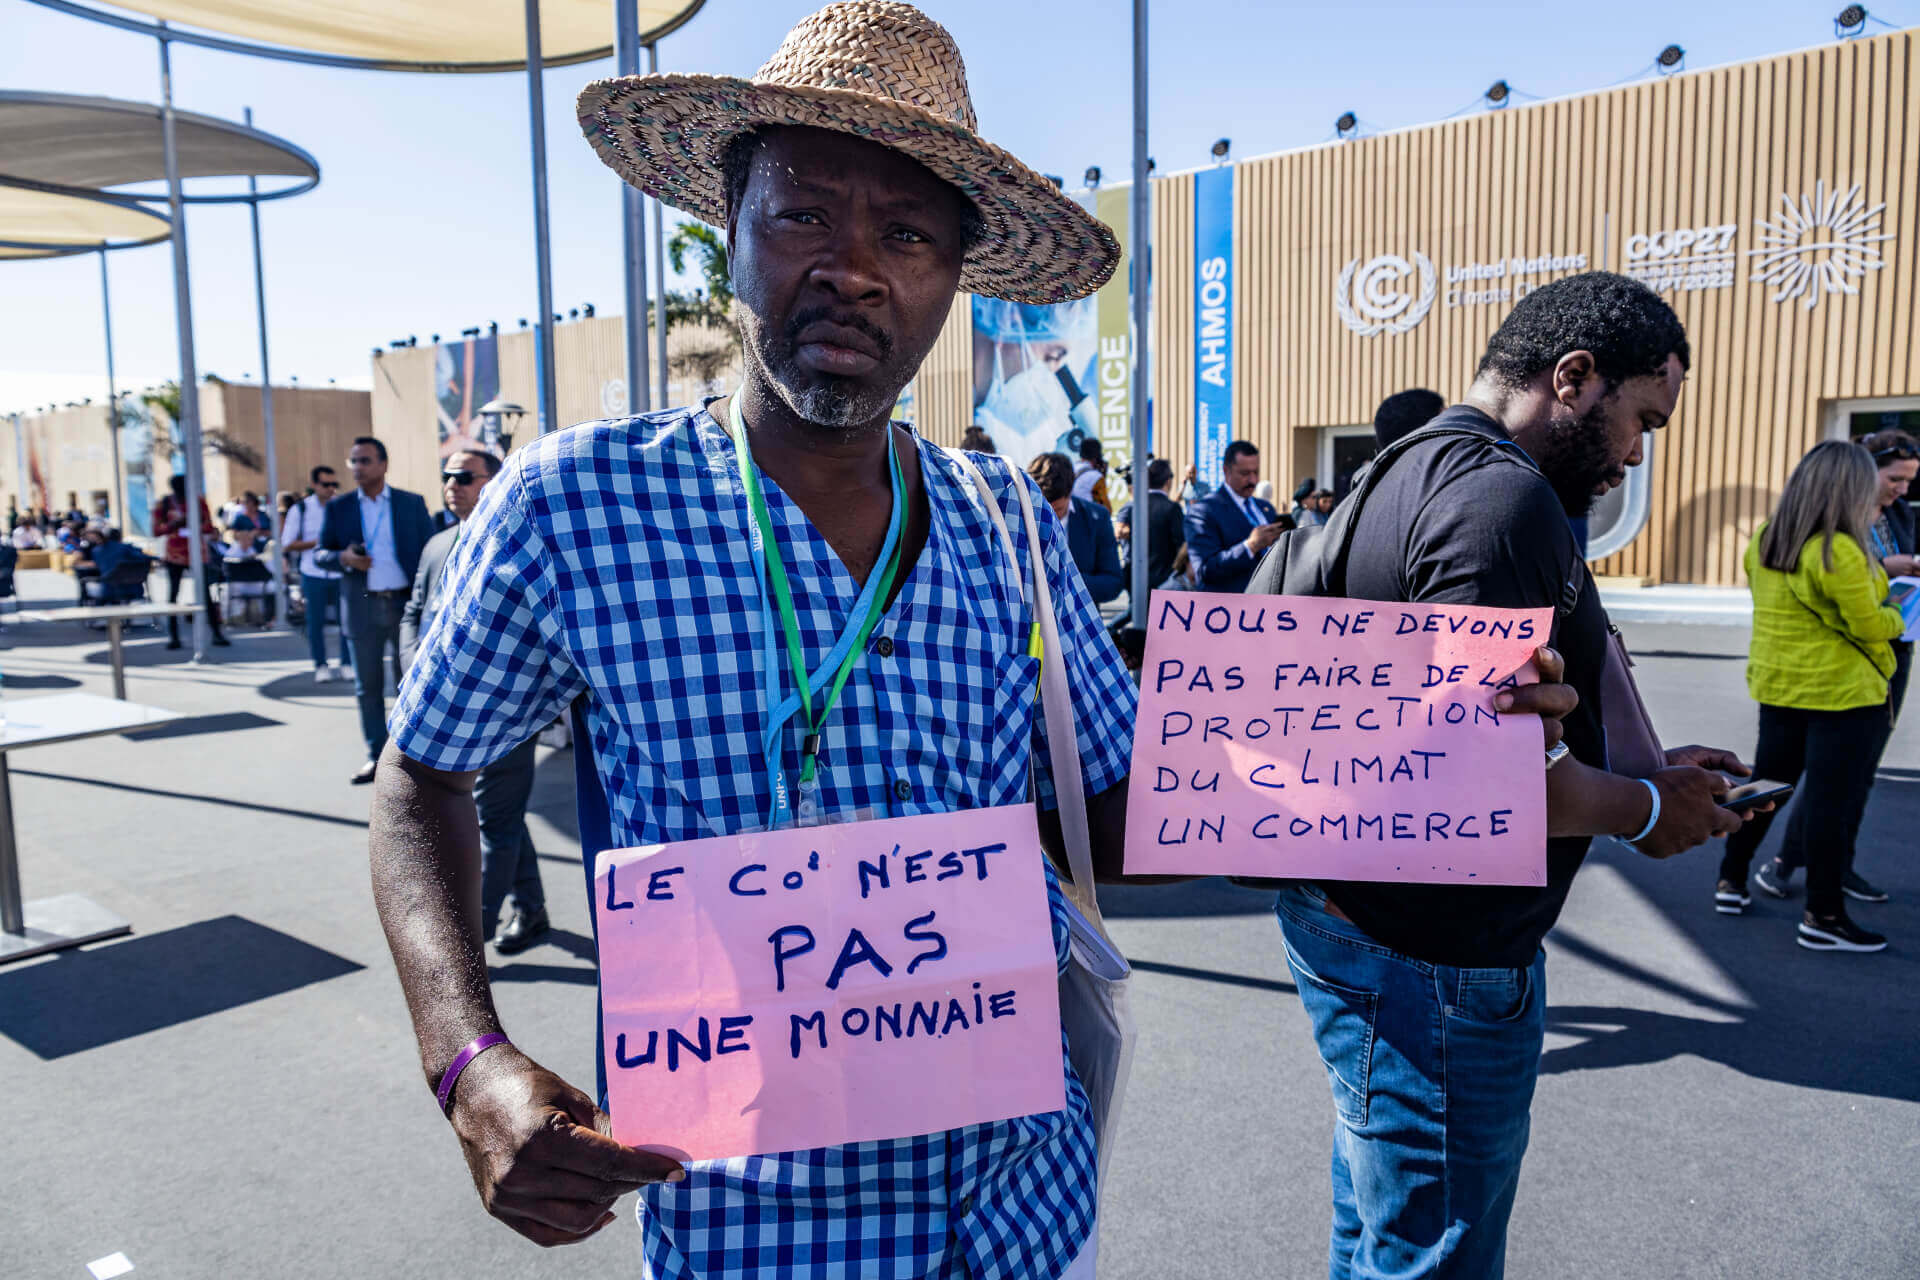 United Nations
Climate Ch
COP27
EGYPT2022
SCIENCE
AHMOS
NOUS NE DEVONS
PAS FAIRE DE LA
PROTECTION
DU CLIMAT
UN COMMERCE
LE CO² N'EST
PAS
UNE MONNAIE